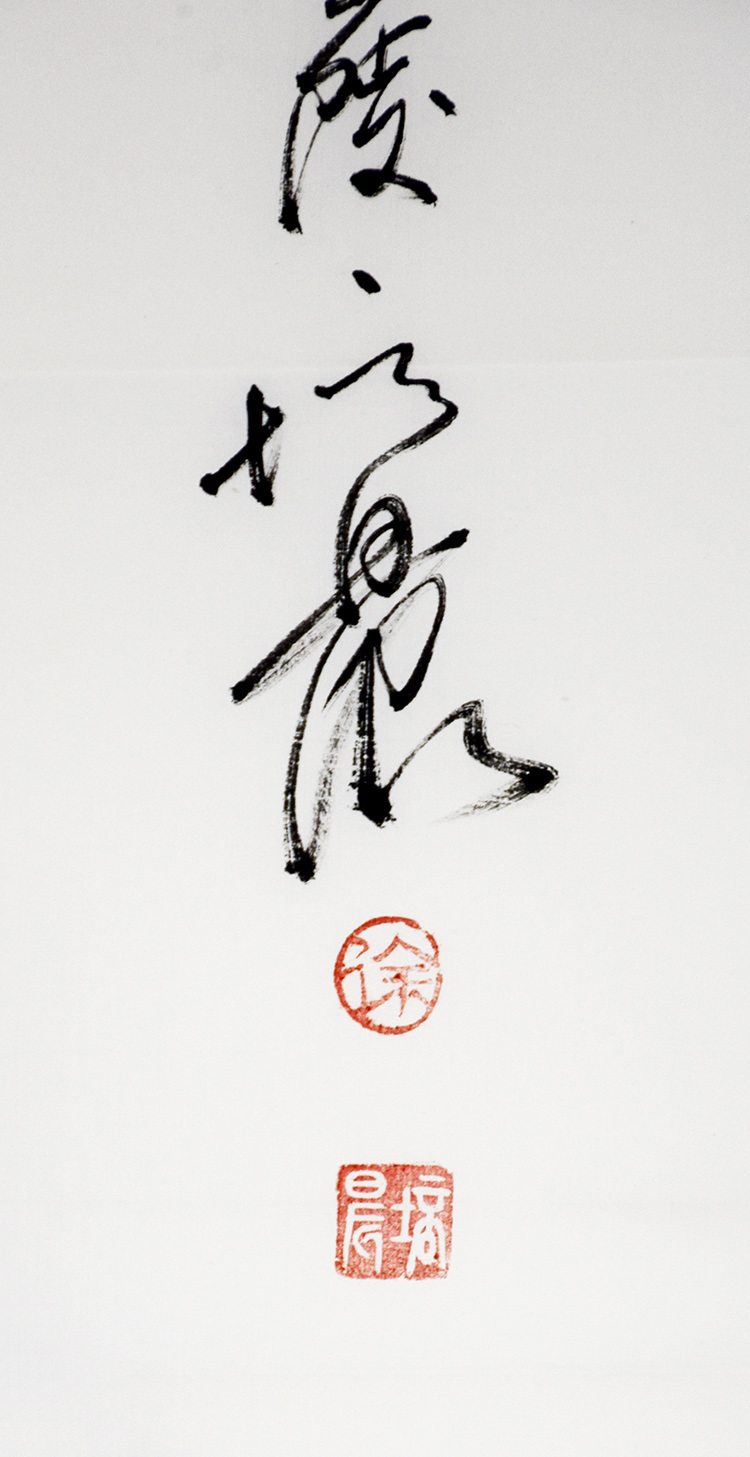 培晨
徐
培晨